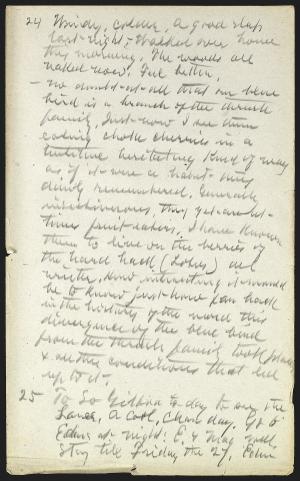 24 Windy, colder, a good sleep
last night; Walked over home
this morning. The woods all
naked now. Feel better.
— no doubt at all that our blue
bird is a branch of the thrush
family. Just now I see them
eating choke cherries in a
hesitating kind of way
as if it were a habit
dimly remembered. Generally
insectivorous, they yet are at
times fruit-eaters. I have known
them to live on the berries of
the hard hack (Lotus) all
winter. How interesting it would
be to know just how far back
in the history of the world this
divergence of the blue bird
from the thrush family took place,
& all the conditions that led
up to it.
25 To So Gilboa to day to see the
Lanes, a cool, day. Go to
Edens at night; E, & Mag will
stay till Friday the 27, Eden